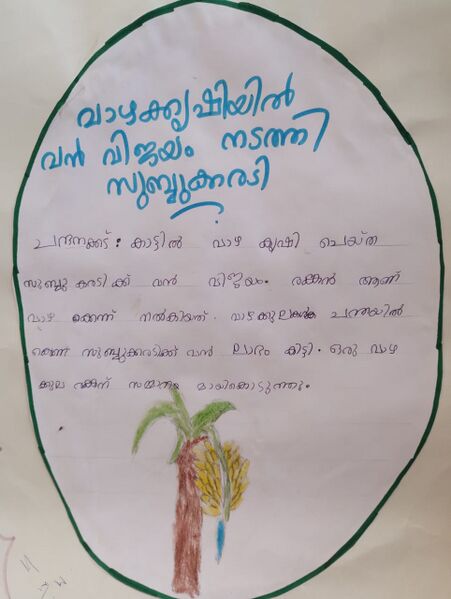 വാഴക്കൃഷിയിൽ
വൻ വിജയം നടത്തി
സുബ്ബുക്കരടി
ചന്ദനക്കാട് : കാട്ടിൽ വാഴ കൃഷി ചെയ്ത
സുബ്ബു കരടിക്ക് വൻ വിജയം. രക്കൻ ആണ്
വാഴ നൽകിയത്. വാഴക്കുലകൾക്ക ചന്തയിൽ
സുബ്ബുക്കരടിക്ക് വൻ ലാഭം കിട്ടി. ഒരു വാഴ
ക്കുല സമ്മാനം മായികൊടുത്തു.